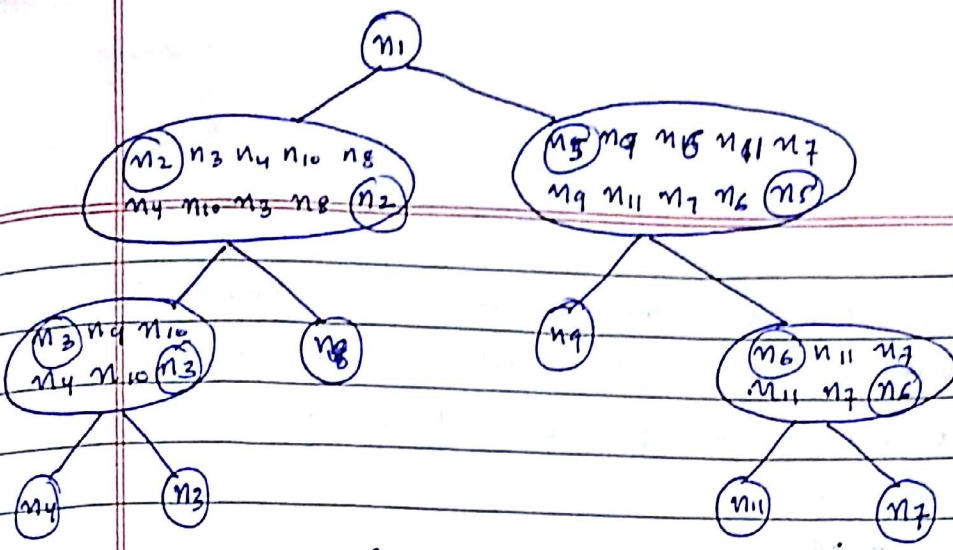 n1
n2 n3 n4 n10 n8
n4 n10 n3 n8 n2
n5 n9 n6 n11 n7
n9 n11 n7 n6 n5
n3 n4 n10
n4 n10 n3
n8
n9
n6 n11 n7
n11 n7 n6
n4
n3
n11
n7